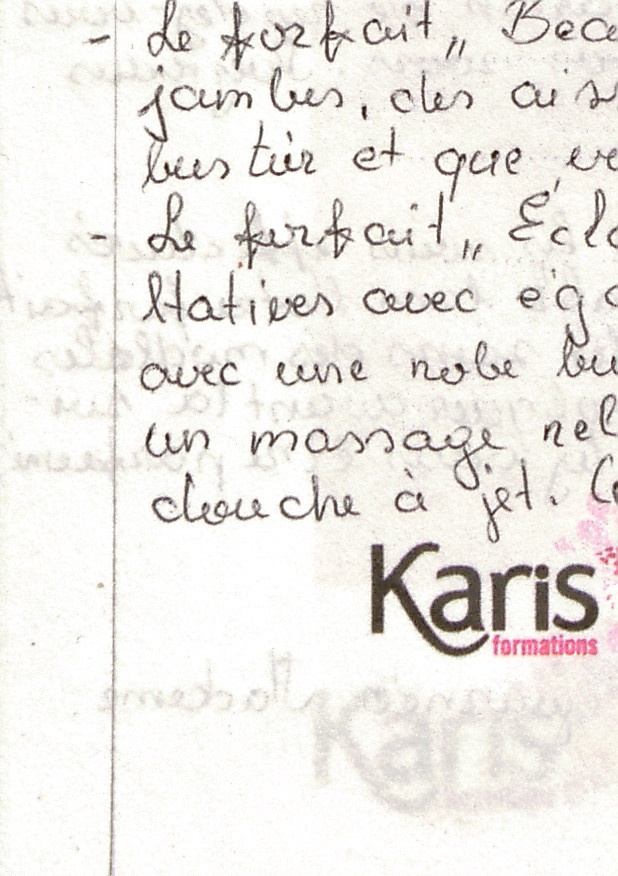 - Le forfait „ Bea
jambes, des aiss
bustier et que ve
- Le forfait „ Écla
ltatives avec éga
avec une robe bu
un massage rel
douche à jet. Ce
Karis
formations